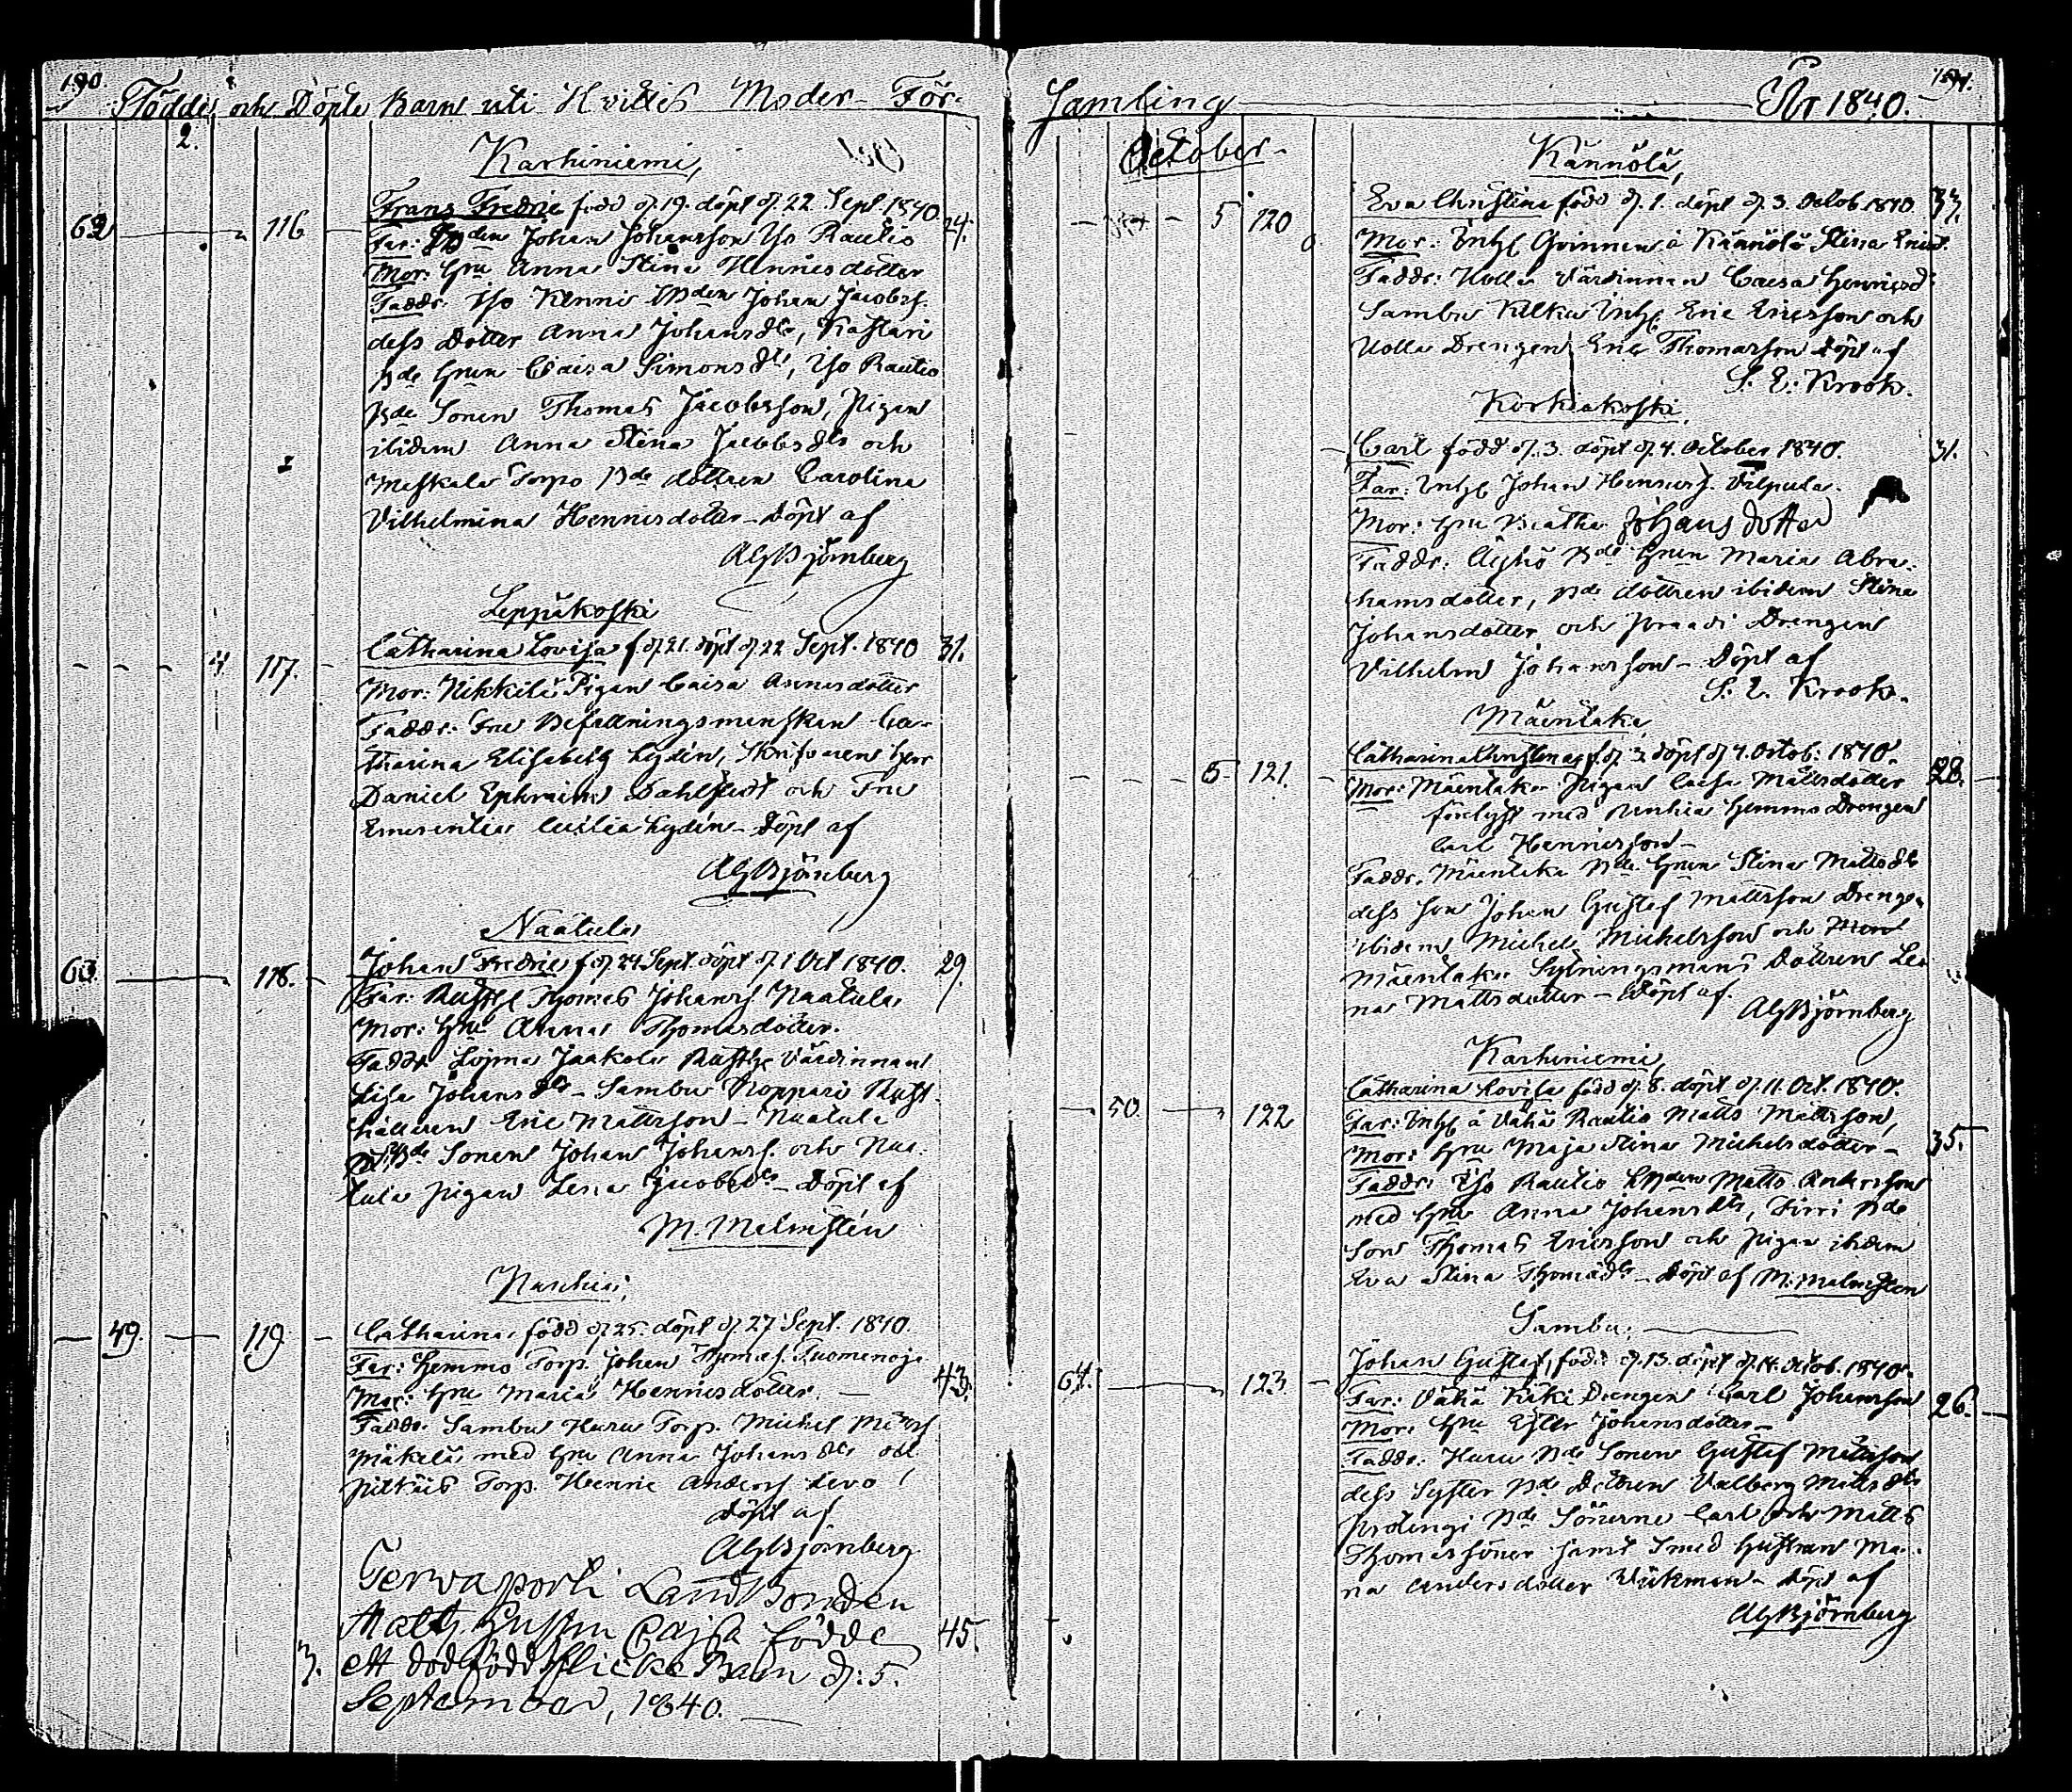 190.
Födde och Döpte Barn uti Hvittis Moder-För-
2.
Karhiniemi,
62 116 Frans Fredric född d. 19. döpt d. 22 Sept. 1840 24.
Far: Johan Johansson Iso Rautio
Mor: Hru Anna Stina Henricsdotter
Faddr: Iso Johan Jacobss.
dess Dotter Anna Johansdtr,
Bde Hrun Caisa Simonsdtr, Iso Rautio
Bde Sonen Thomas Jacobsson, Pigan
ibidem Anna Stina Jacobsdtr och
Torpo Bde dottren Carolina
Vilhelmina Henricsdotter - Döpt af
Björnberg
Leppäkoski
4 117. Catharina Lovisa f. d. 21. döpt d. 22 Sept. 1840 31.
Mor: Nikkilä Pigan Caisa Annasdotter
Faddr: Fru Befallningsmanskan Ca-
tharina Elisabeth Lydén, Skrifvaren Herr
Daniel Ephraim Dahlstedt och Fru
Emerentia Cecilia Lydén - Döpt af
Björnberg
Naatula
63 118. Johan Fredric f. d. 24 Sept. döpt d. 1 Oct 1840. 29.
Far: Rusth. Thomas Johanss. Naatula
Mor: Hru Anna Thomasdotter.
Faddr. Loima Jaakola Rusth. Värdinnan
Lisa Johansdtr - Sambu Roppari Rust-
hållaren Eric Mattsson - Naatula
Bde Sonen Johan Johanss. och Naa-
tula pigan Lena Jacobsdtr - Döpt af
M. Malmstén
Nanhia,
49. 119 Catharina, född d. 25. döpt d. 27 Sept. 1840. 43.
Far: Hemmo Torp. Johan Thomas. Tuomenoja
Mor: Hru Maria Henricsdotter. —
Faddr. Sambu Huru Torp. Michel
Mäkelä med Hru Anna Johansdtr och
Torp. Henric Anderss Levo
Döpt af
Björnberg
Landbonden
Hustru Cajsa födde 45.
3. ett dödfödt flicke Barn d: 5.
September, 1840. —
191.
Samling År 1840.
October
Kännölä,
5 120 Eva Christina född d. 1. döpt d. 3. Octob 1840. 33.
Mor: Inh. Qvinnan å Kännölä Stina
Faddr: Uolla Värdinnan Caesa Henricsd.
Sambu Kilkku Inh. Eric Ericsson och
Uolla Drengen Eric Thomasson Döpt af
S. E. Krook.
Korkiakoski,
Carl född d. 3. döpt d. 4. October 1840. 31.
Far: Inh. Johan Henricss. Vilpula.
Mor: Hru Beatha Johansdotter
Faddr: Äyhö Bde Hrun Maria Abra-
hamsdotter, Bde dottren ibidem Stina
Johansdotter och Drengen
Vilhelm Johansson - Döpt af
S. E. Krook.
Mäenlaka,
5 121. Catharina Christina f. d. 3 döpt d. 4. Octob: 1840. 28.
Mor: Mäenlaka Pigan Caisa Mattsdotter
förlofst med Nanhia Hemmo Drengen
Carl Henricsson -
Faddr. Mäenlaka Bde Hrun Stina Mattsdtr
dess son Johan Gustaf Mattsson Drengen
ibidem Michel Michelsson och
Mäenlaka Sytningsmans Dottren Le-
na Mattsdotter - Döpt af.
Björnberg
Karhiniemi,
50. 122 Catharina Lovisa född d. 8. döpt d. 11. Oct. 1840. 35.
Far: Inh. å Vähä Rautio Matts Mattsson,
Mor: Hru Maja Stina Michelsdotter -
Faddr: Iso Rautio Matts Andersson
med Hru Anna Johansdtr, Sirri Bde
Son Thomas Ericsson och Pigan ibidem
Eva Stina Thomasdtr - Döpt af M. Malmstén
Sambu.
64. 123. Johan Gustaf, född d. 13. döpt d. 14. Octob. 1840. 26.
Far: Vähä Kiki Drengen Carl Johansson
Mor: Hru Ester Johansdotter -
Faddr. Huru Bde Sonen Gustaf Mattsson
dess Syster Bde Dottren Valborg Mattsdtr
Bde Sönerne Carl och Matts
Thomassöner samt Smed Hustrun Ma-
ria Andersdotter Vikman - Döpt af
Björnberg